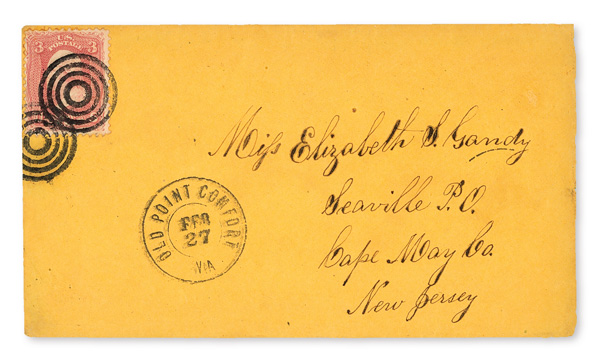 3 U.S. 3
POSTAGE
Miſs Elizabeth S. Gandy
Seaville P.O.
Cape May Co.
New Jersey
OLD POINT COMFORT
FEB
27
VA